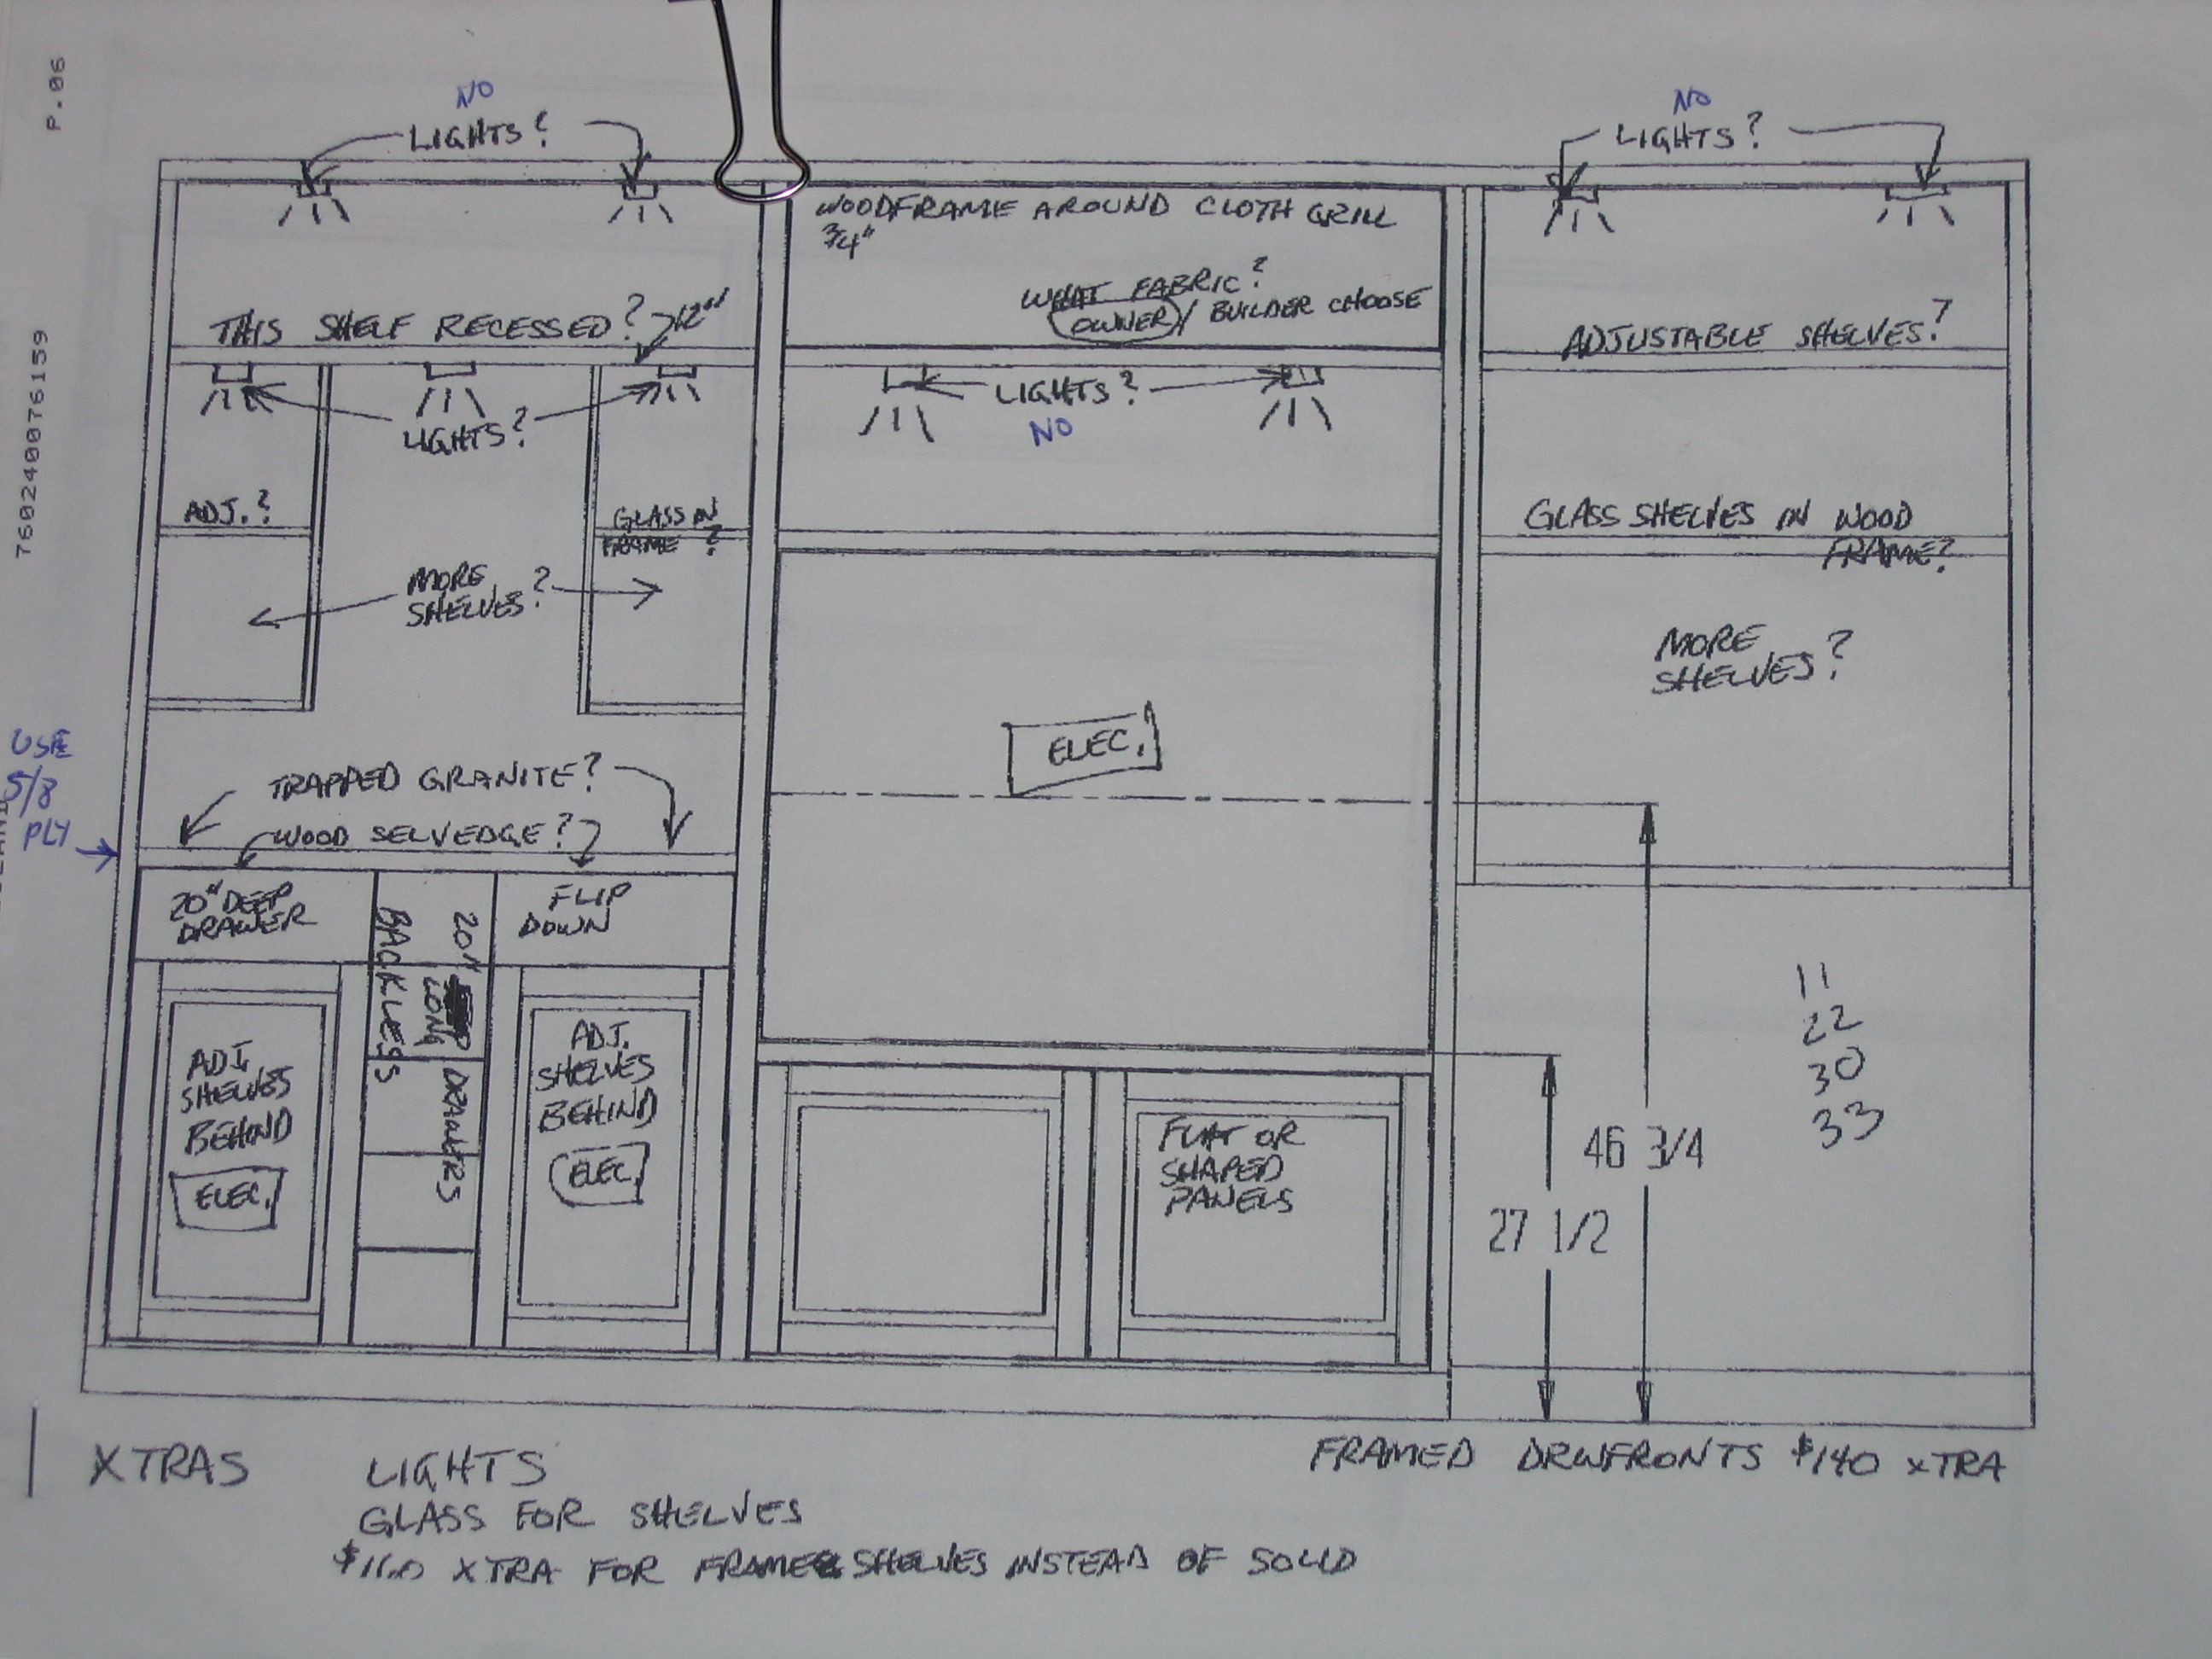 P.06
7606240076159
NO
LIGHTS?
NO
LIGHTS?
WOODFRAME AROUND CLOTH GRILL
3/4"
WHAT FABRIC?
OWNER / BUILDER CHOOSE
THIS SHELF RECESSED? 12"
ADJUSTABLE SHELVES?
LIGHTS?
LIGHTS?
NO
ADJ.?
GLASS IN
FRAME?
GLASS SHELVES IN WOOD
FRAME?
MORE
SHELVES?
MORE
SHELVES?
ELEC.
USE
5/8
PLY
TRAPPED GRANITE?
WOOD SELVEDGE?
20" DEEP
DRAWER
BACKLESS
20" LONG DRAWERS
FLIP
DOWN
ADJ.
SHELVES
BEHIND
ELEC.
ADJ.
SHELVES
BEHIND
ELEC.
FLAT OR
SHAPED
PANELS
11
22
30
33
46 3/4
27 1/2
XTRAS
LIGHTS
GLASS FOR SHELVES
XTRA FOR FRAMED SHELVES INSTEAD OF SOLID
FRAMED DRWFRONTS $140 XTRA